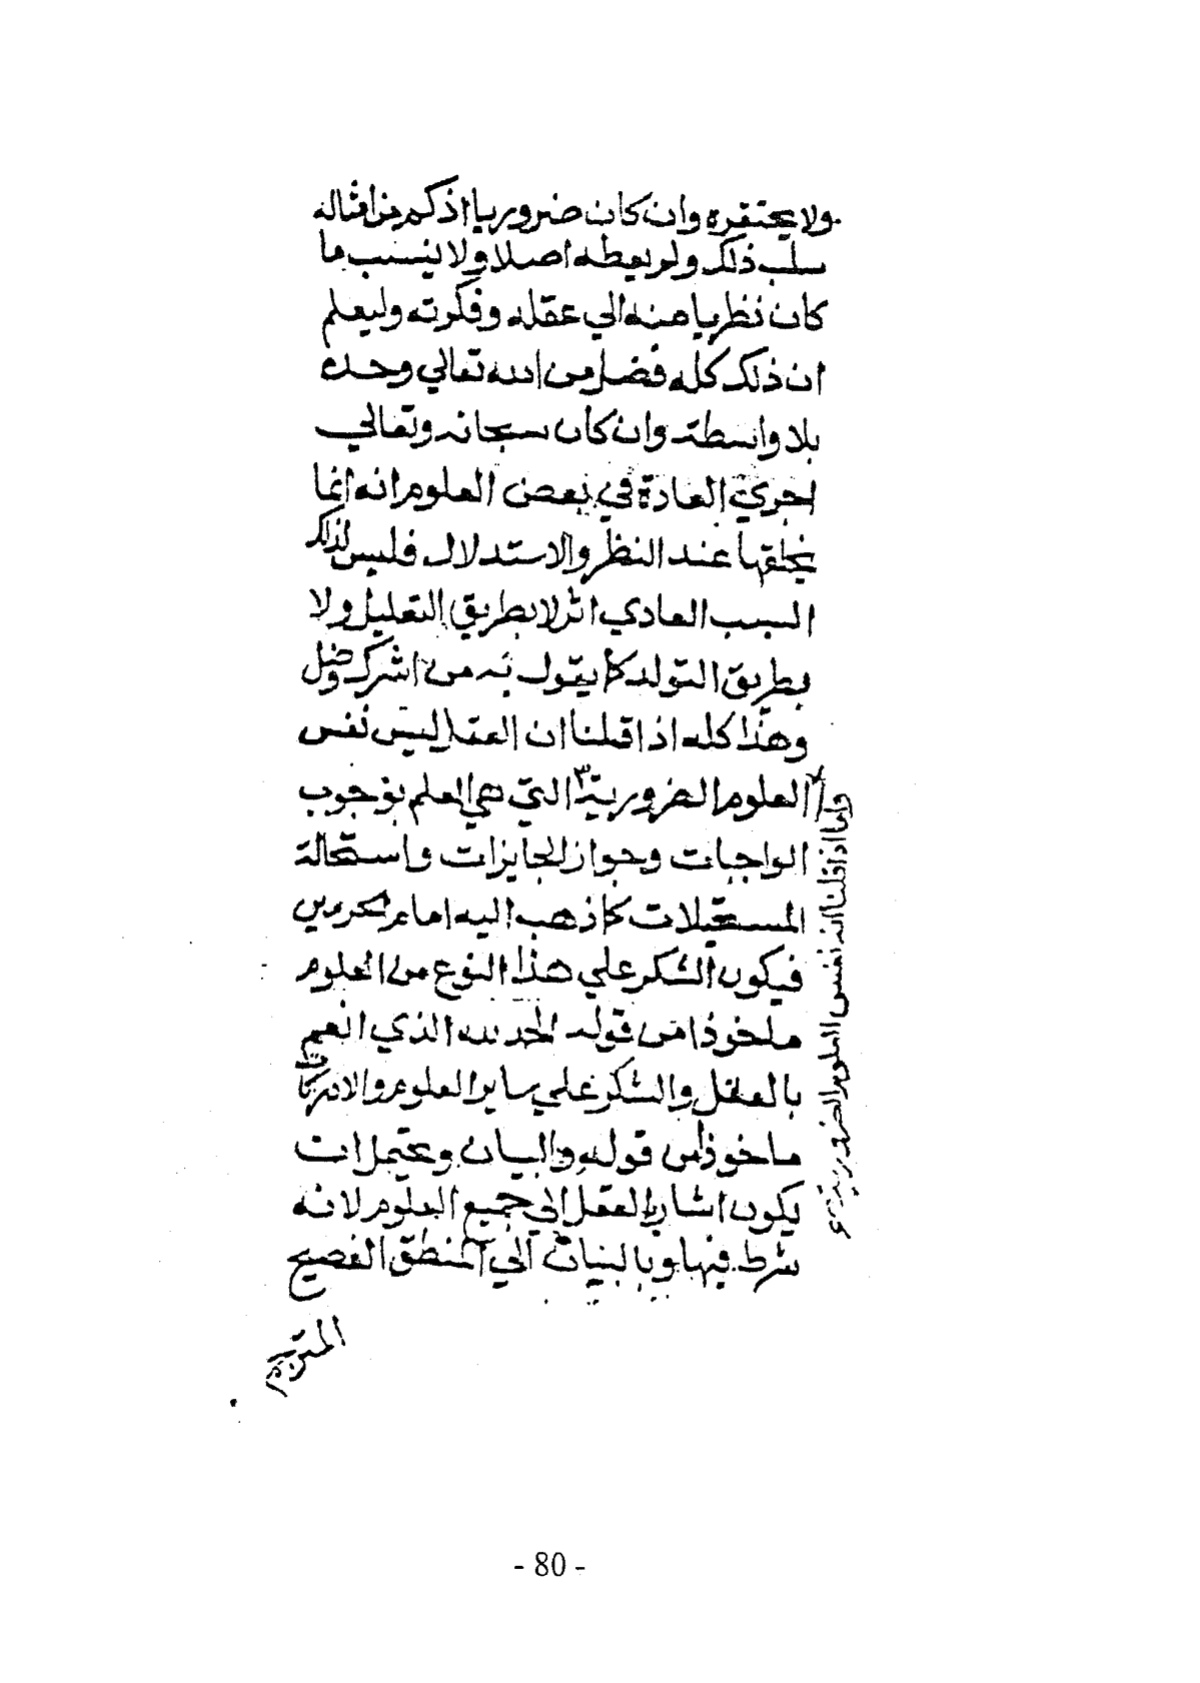 ولا يحتقره وان كان ضروريا اذ كم من امثاله
سلب ذلك ولم يعطه اصلا ولا ينسب ما
كان نظريا منه الي عقله وفكرته وليعلم
ان ذلك كله فضل من الله تعالي وحده
بلا واسطة وان كان سبحانه وتعالي
اجري العادة في بعض العلوم انه انما
يخلقها عند النظر والاستدلال فليس لذلك
السبب العادي اثر لا بطريق التعليل ولا
بطريق التولد كما يقول به من اشرك وضل
وهذا كله اذا قلنا ان العقل ليس نفس
العلوم الضرورية التي هي العلم بوجوب
الواجبات وجواز الجايزات واستحالة
المستحيلات كما ذهب اليه امام الحرمين
فيكون الشكر علي هذا النوع من العلوم
ماخوذا من قوله الحمد لله الذي انعم
بالعقل والشكر علي ساير العلوم والادراكات
ماخوذ من قوله والبيان ويحتمل ان
يكون اشار بالعقل الي جميع العلوم لانه
شرط فيها وبالبيان الي المنطق الفصيح
المترجم
واما اذا قلنا انه نفس العلوم الضرورية
- 80 -